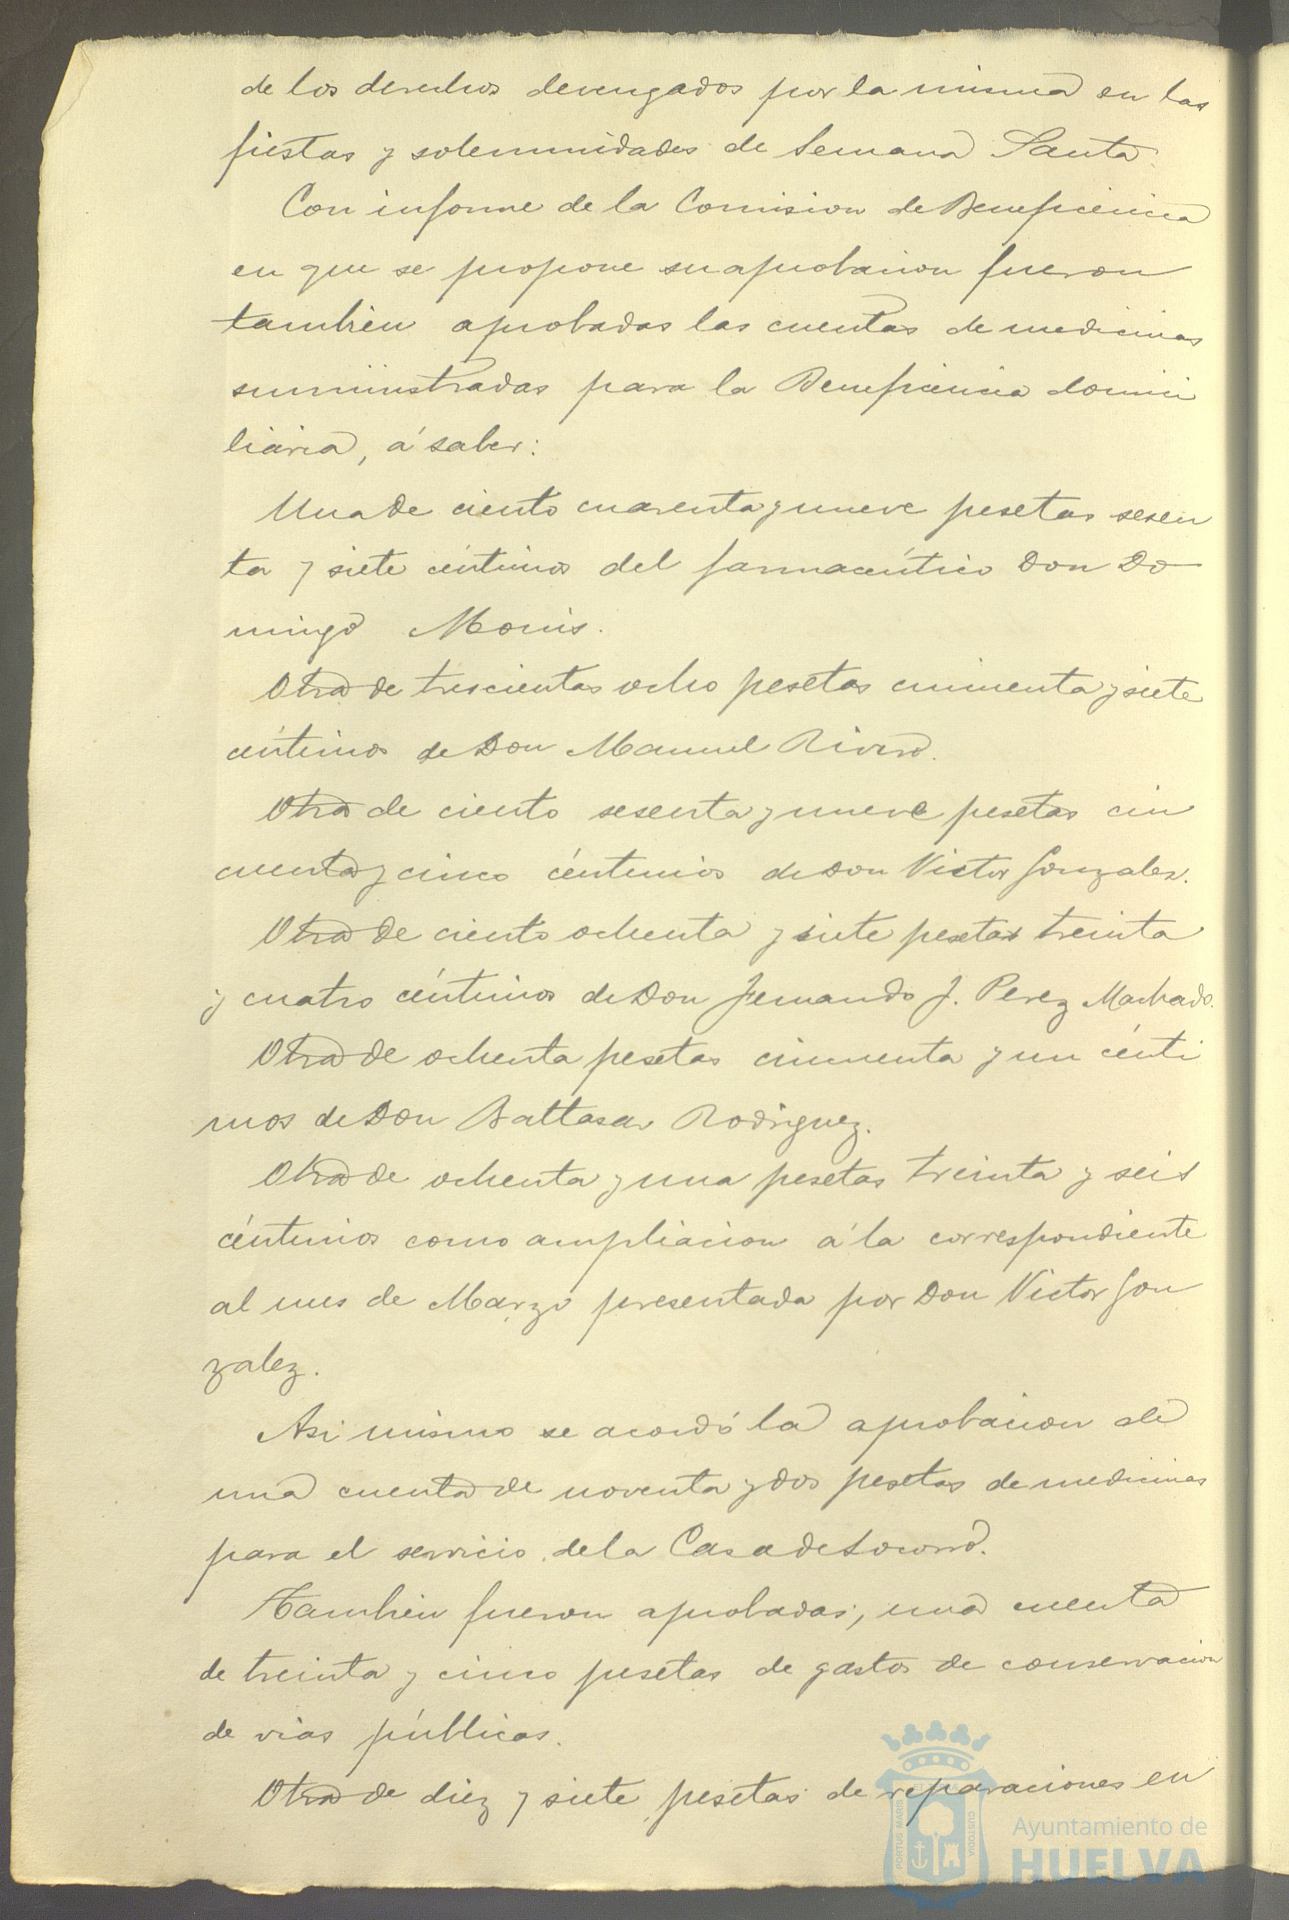 de los derechos devengados por la misma en las
fiestas y solemnidades de Semana Santa
Con informe de la Comision de Beneficencia
en que se propone su aprobacion fueron
tambien aprobadas las cuentas de medicinas
suministradas para la Beneficencia domici
liaria, á saber:
Una de ciento cuarenta y nueve pesetas sesen
ta y siete céntimos del farmacéutico Don Do
mingo Monis.
Otra de trescientas ocho pesetas cincuenta y siete
céntimos de Don Manuel Rivero.
Otra de ciento sesenta y nueve pesetas cin
cuenta y cinco céntimos de Don Victor Gonzalez.
Otra de ciento ochenta y siete pesetas treinta
y cuatro céntimos de Don Fernando J. Perez Machado.
Otra de ochenta pesetas cincuenta y un cénti
mos de Don Baltasar Rodriguez.
Otra de ochenta y una pesetas treinta y seis
céntimos como ampliacion á la correspondiente
al mes de Marzo presentada por Don Victor Gon
zalez.
Asi mismo se acordó la aprobacion de
una cuenta de noventa y dos pesetas de medicinas
para el servicio de la Casa de Socorro.
Tambien fueron aprobadas, una cuenta
de treinta y cinco pesetas de gastos de conservacion
de vias públicas.
Otra de diez y siete pesetas de reparaciones en
PORTUS MARIS
CUSTODIA
Ayuntamiento de
HUELVA